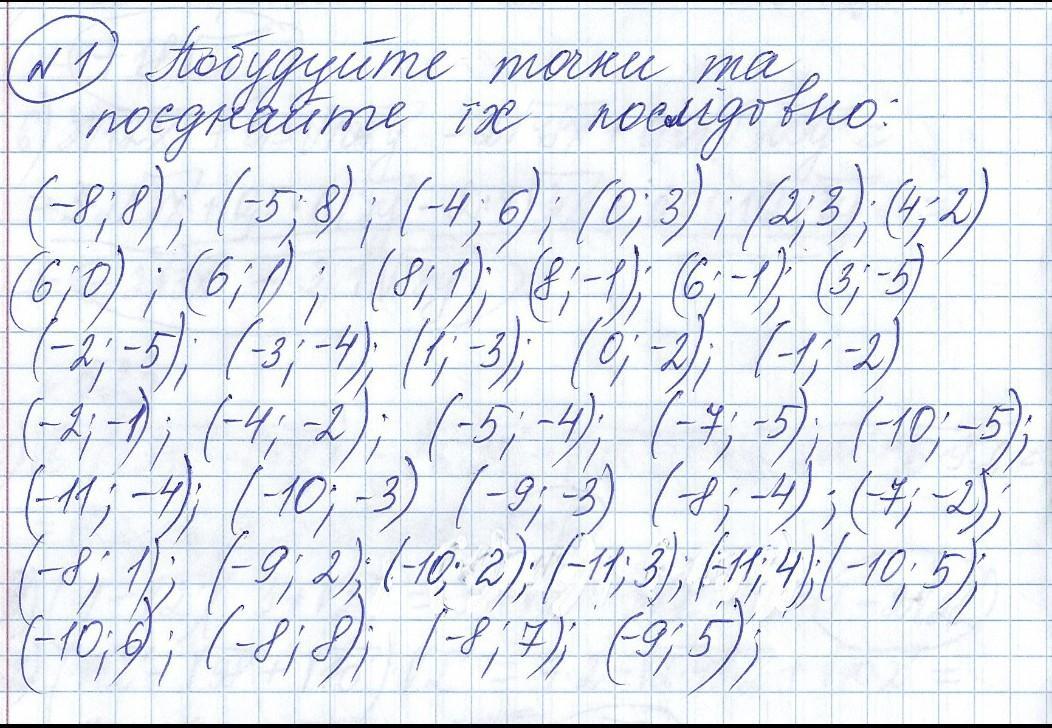 №1 Побудуйте точки та
поєднайте їх послідовно:
(-8; 8); (-5; 8); (-4; 6); (0; 3); (2; 3); (4; 2)
(6; 0); (6; 1); (8; 1); (8; -1); (6; -1); (3; -5)
(-2; -5); (-3; -4); (1; -3); (0; -2); (-1; -2)
(-2; -1); (-4; -2); (-5; -4); (-7; -5); (-10; -5);
(-11; -4); (-10; -3) (-9; -3) (-8; -4); (-7; -2);
(-8; 1); (-9; 2); (-10; 2); (-11; 3); (-11; 4); (-10; 5);
(-10; 6); (-8; 8); (-8; 7); (-9; 5);